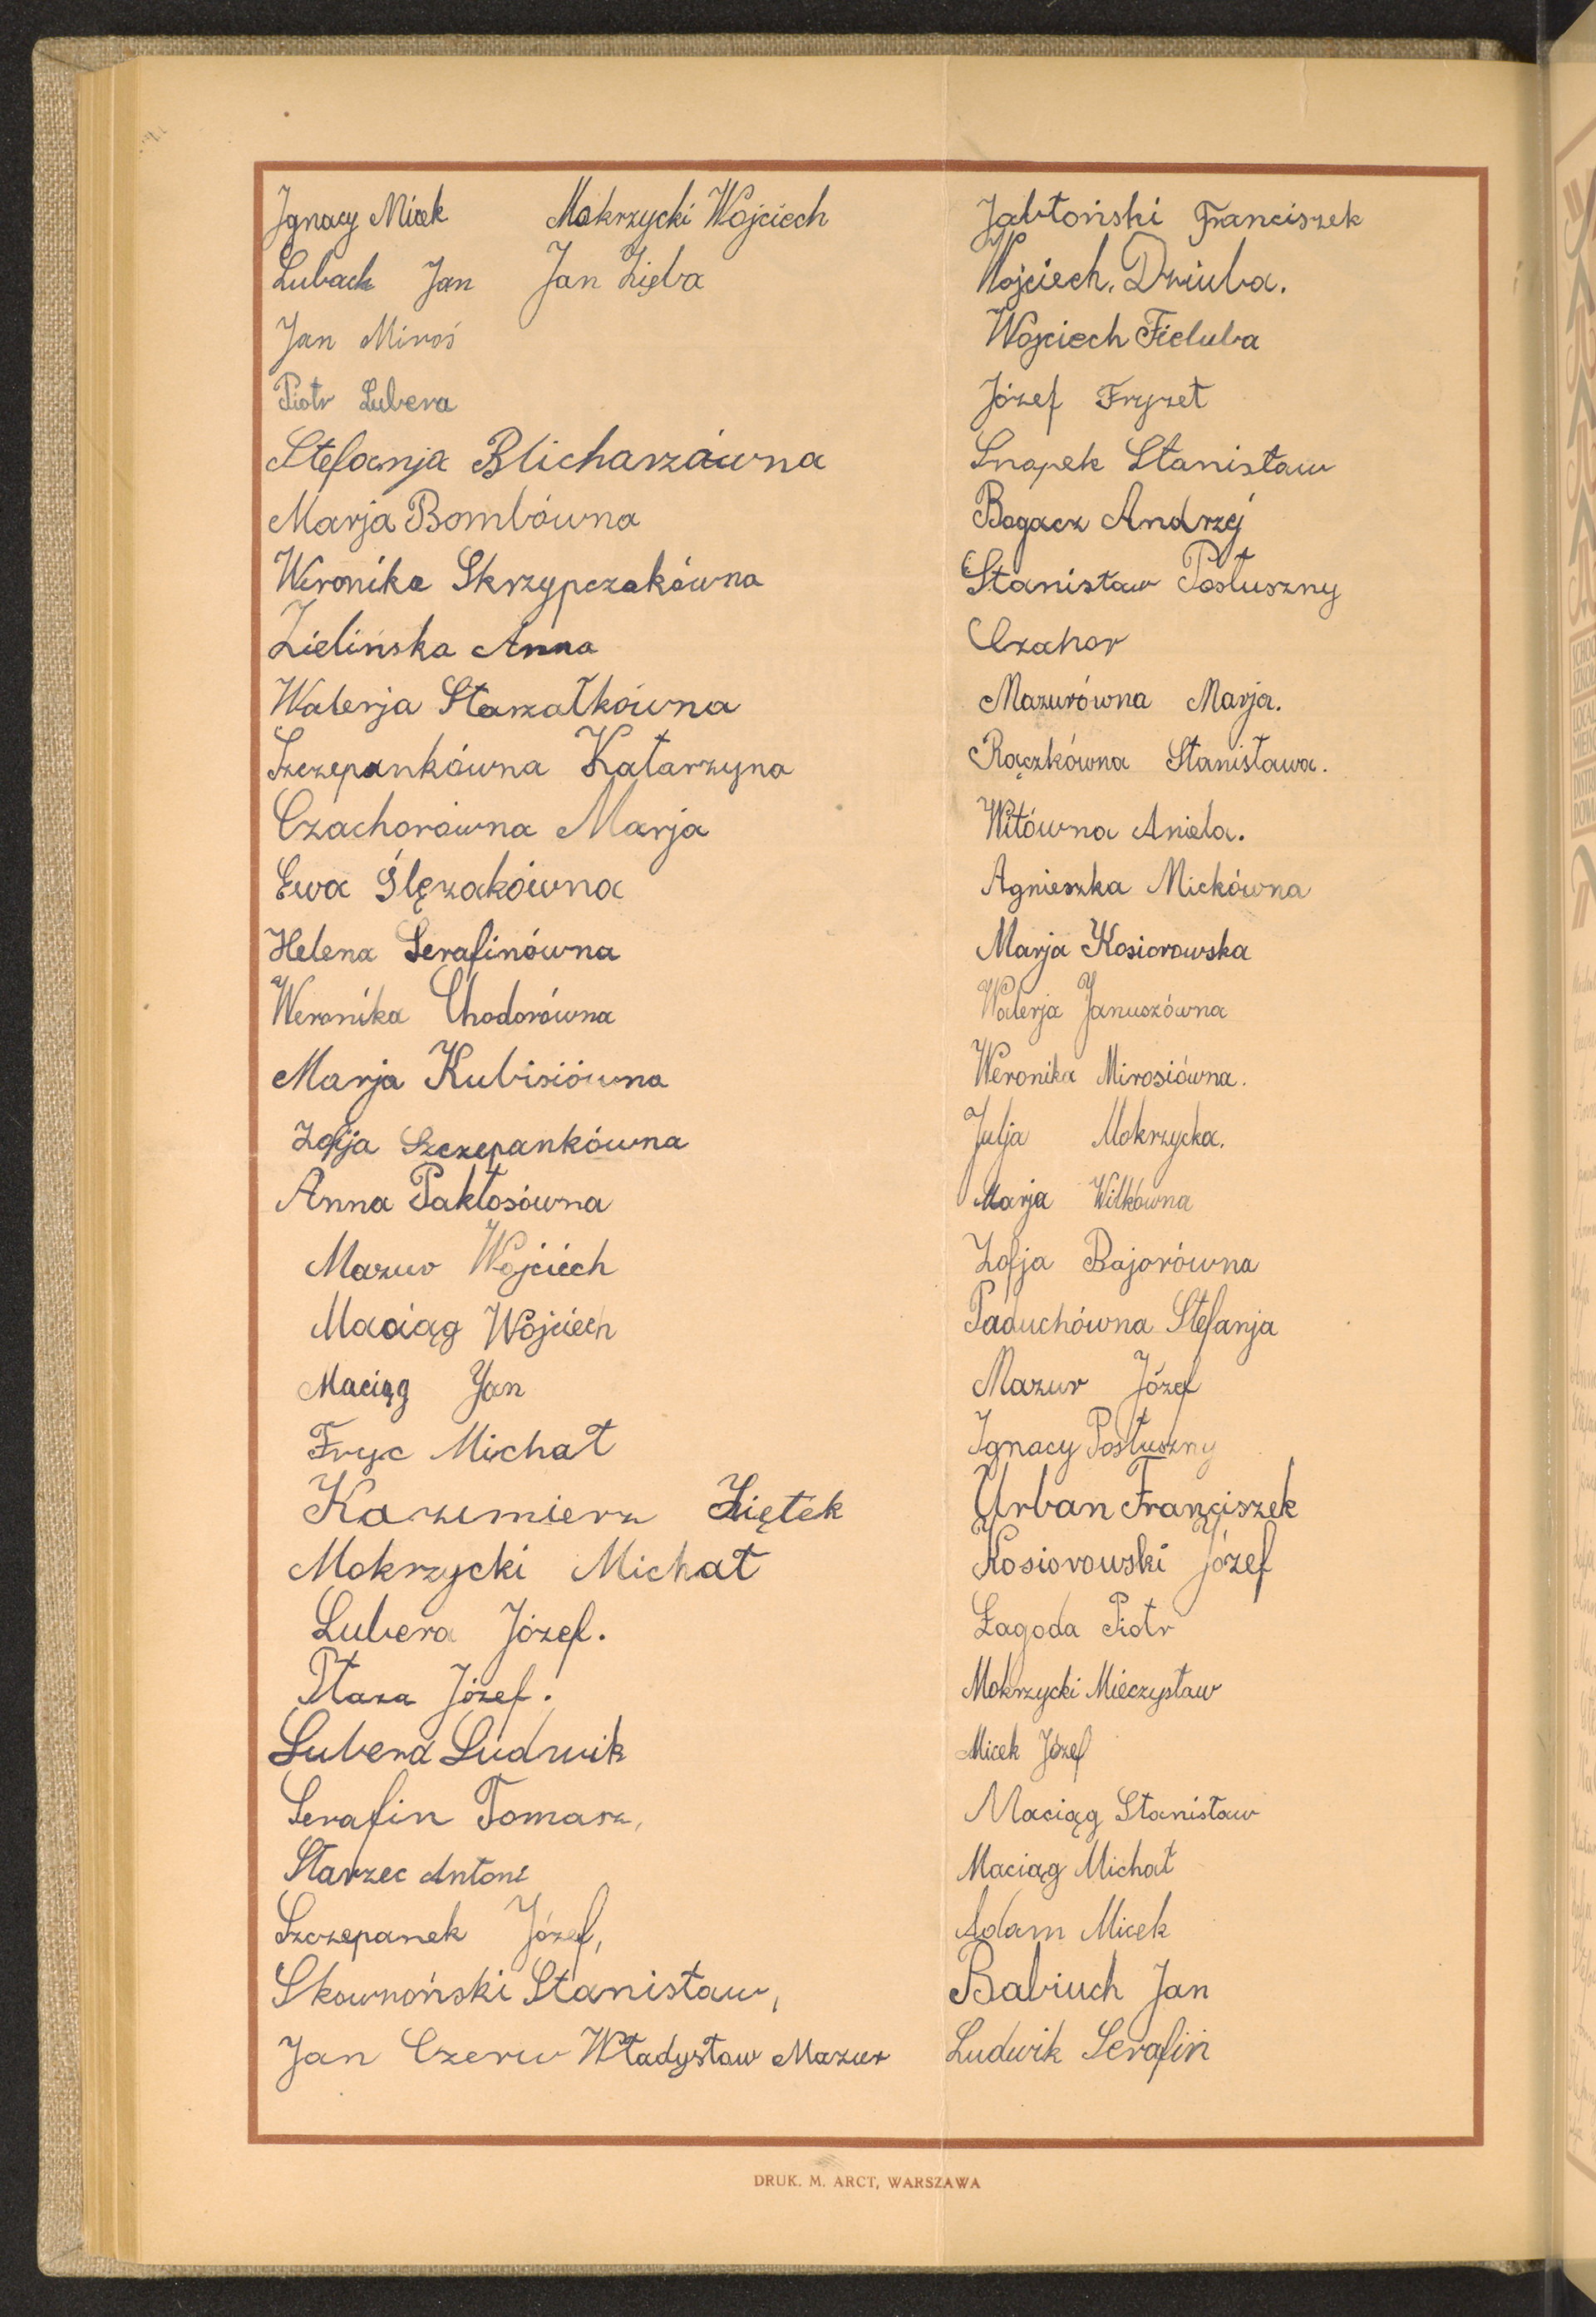 Ignacy Micek Mokrzycki Wojciech
Lubach Jan Jan Zięba
Jan Miroś
Piotr Lubera
Stefanja Blicharzówna
Marja Bombówna
Weronika Skrzypczakówna
Zielińska Anna
Walerja Starzałkówna
Szczepankówna Katarzyna
Czachorówna Marja
Ewa Ślęzakówna
Helena Serafinówna
Weronika Chodorówna
Marja Kubisiówna
Zofja Szczepankówna
Anna Pakłosówna
Mazur Wojciech
Maciąg Wojciech
Maciąg Jan
Fryc Michał
Kazimierz Ziętek
Mokrzycki Michał
Lubera Józef.
Płaza Józef.
Lubera Ludwik
Serafin Tomasz,
Starzec Antoni
Szczepanek Józef,
Skowroński Stanisław,
Jan Czerw Władysław Mazur
Jabłoński Franciszek
Wojciech. Dziuba.
Wojciech Fieluba
Józef Fryzeł
Snopek Stanisław
Bogacz Andrzej
Stanisław Posłuszny
Czahor
Mazurówna Marja.
Rączkówna Stanisława.
Witówna Aniela.
Agnieszka Mickówna
Marja Kosiorowska
Walerja Januszówna
Weronika Mirosiówna.
Julja Mokrzycka.
Marja Wilkówna
Zofja Bajorówna
Paduchówna Stefanja
Mazur Józef
Ignacy Posłuszny
Urban Franciszek
Kosiorowski Józef
Łagoda Piotr
Mokrzycki Mieczysław
Micek Józef
Maciąg Stanisław
Maciąg Michał
Adam Micek
Babiuch Jan
Ludwik Serafin
DRUK. M. ARCT, WARSZAWA